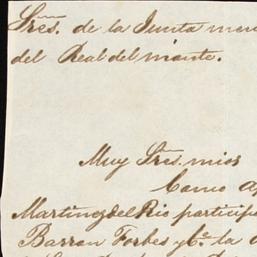 Sres. de la Junta
del Real del monte.
Muy Sres. mios
Como
Martinez del Rio
Barron Forbes y Ca. la